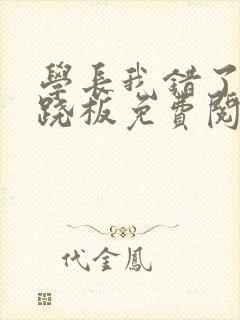 學長我錯了
跷板免費閱
代金鳳